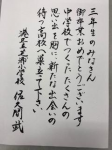 三年生のみなさん
御卒業おめでとうございます
中学校でつくったたくさんの
思い出を胸に新たな出会いの
待つ高校へ巣立て下さい
港区立三光小学校 佐久間 武